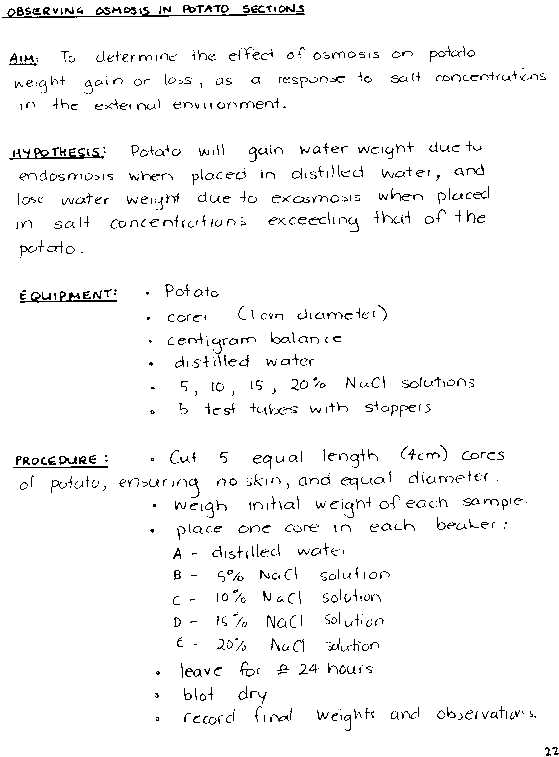 OBSERVING OSMOSIS IN POTATO SECTIONS
AIM: To determine the effect of osmosis on potato
weight gain or loss, as a response to salt concentrations
in the external environment.
HYPOTHESIS: Potato will gain water weight due to
endosmosis when placed in distilled water, and
lose water weight due to exosmosis when placed
in salt concentrations exceeding that of the
potato.
EQUIPMENT: • Potato
• corer (1cm diameter)
• centigram balance
• distilled water
• 5, 10, 15, 20% NaCl solutions
• 5 test tubes with stoppers
PROCEDURE: • Cut 5 equal length (4cm) cores
of potato, ensuring no skin, and equal diameter.
• weigh initial weight of each sample.
• place one core in each beaker:
A - distilled water
B - 5% NaCl solution
C - 10% NaCl solution
D - 15% NaCl solution
E - 20% NaCl solution
• leave for 24 hours
• blot dry
• record final weights and observations.
22